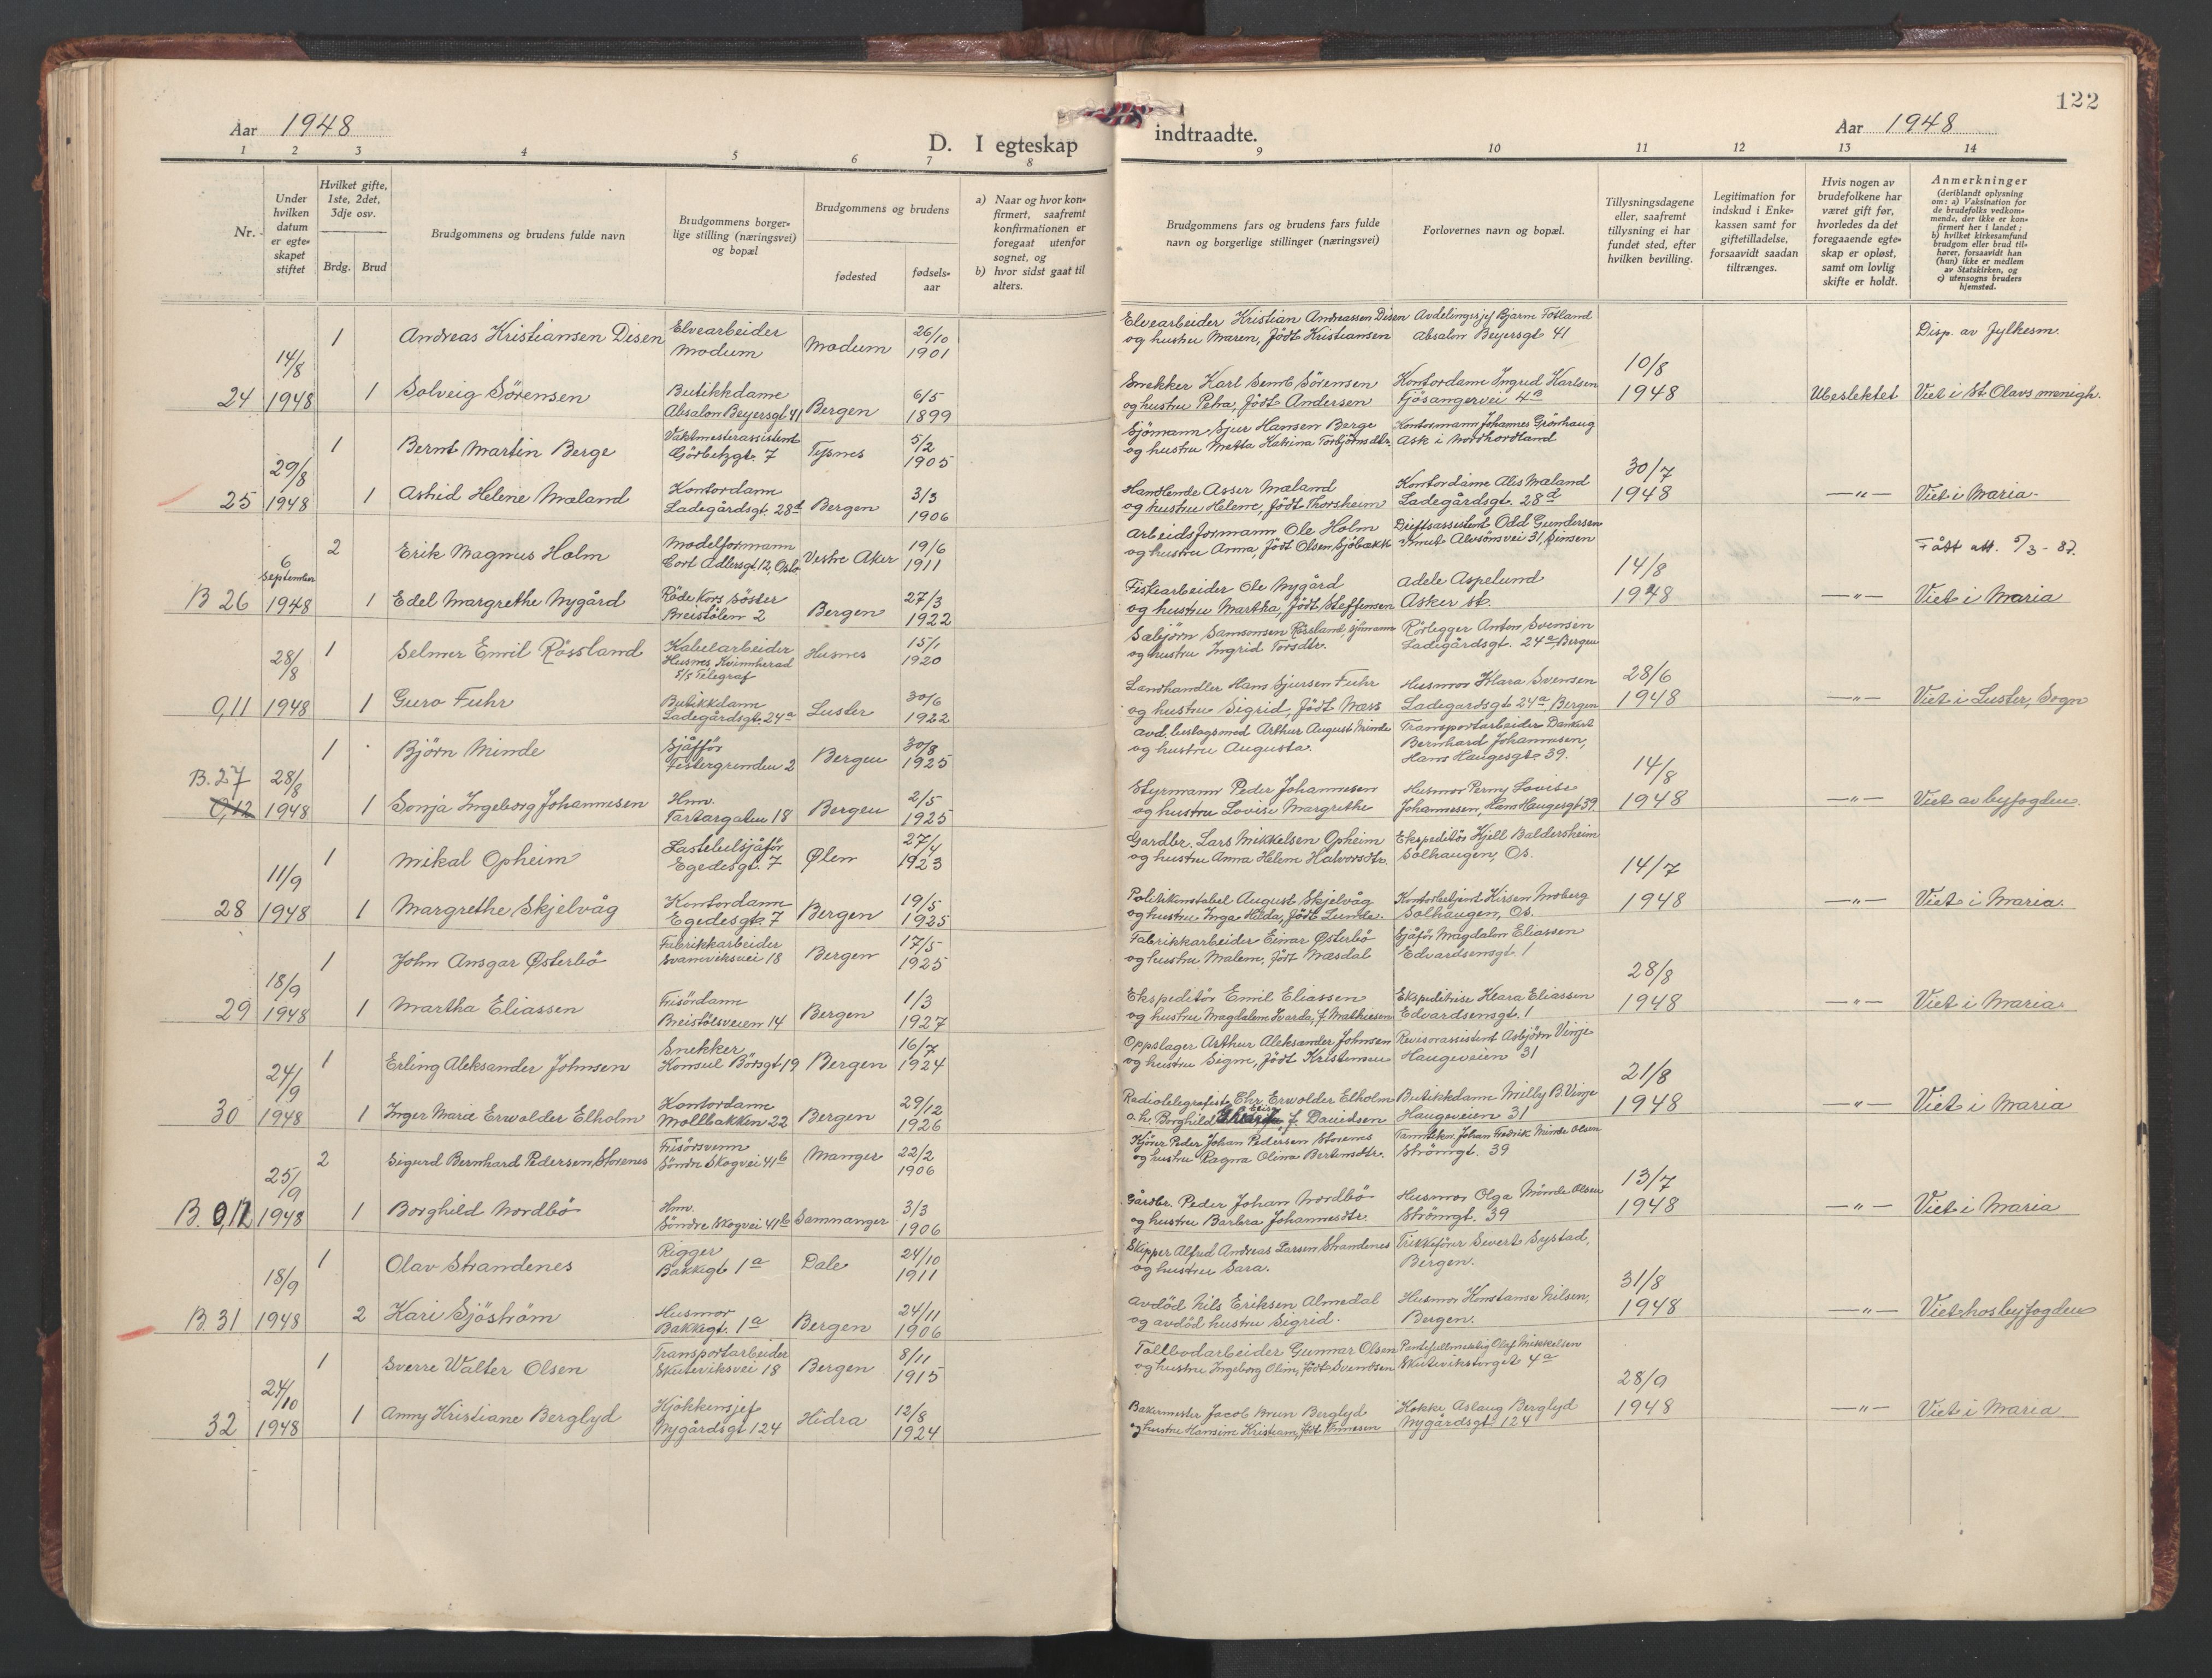 122
Aar 1948
D. I egteskap indtraadte.
Aar 1948
1 2 3 4 5 6 7 8 9 10 11 12 13 14
Nr.
Under hvilken datum er egteskapet stiftet
Hvilket gifte, 1ste, 2det, 3dje osv.
Brdg. Brud
Brudgommens og brudens fulde navn
Brudgommens borgerlige stilling (næringsvei) og bopæl
Brudgommens og brudens
fødested
fødselsaar
a) Naar og hvor konfirmert, saafremt konfirmationen er foregaat utenfor sognet, og
b) hvor sidst gaat til alters.
Brudgommens fars og brudens fars fulde navn og borgerlige stillinger (næringsvei)
Forlovernes navn og bopæl.
Tillysningsdagene eller, saafremt tillysning ei har fundet sted, efter hvilken bevilling.
Legitimation for indskud i Enkekassen samt for giftetilladelse, forsaavidt saadan tiltrænges.
Hvis nogen av brudefolkene har været gift før, hvorledes da det foregaaende egteskap er opløst, samt om lovlig skifte er holdt.
Anmerkninger (deriblandt oplysning om: a) Vaksination for de brudefolks vedkommende, der ikke er konfirmert her i landet; b) hvilket kirkesamfund brudgom eller brud tilhører, forsaavidt han (hun) ikke er medlem av Statskirken, og c) utensogns bruders hjemsted.
1 Andreas Kristiansen Disen Elvearbeider Modum Modum 26/10 1901
Elvearbeider Kristian Andreassen Disen og hustru Maren, födt Kristiansen
Avdelingssjef Bjarne Totland Absalon Beyersgt 41
Disp. av fylkesm.
24 14/8 1948 1 Solveig Sørensen Butikkdame Absalon Beyersgt. 41 Bergen 6/5 1899
Snekker Karl Semb Sörensen og hustru Petra, födt Andersen
Kontordame Ingrid Karlsen Fjösangervei 4a
10/8 1948 Ubeslektet Viet i St. Olavs menigh.
1 Bernt Martin Berge Vaktmesterassistent Görbitzgt. 7 Tysnes 5/2 1905
Sjömann Sjur Hansen Berge og hustru Metta Katrina Torbjörnsdtr.
Kontormann Johannes Grönhaug Ask i Nordhordland
25 29/8 1948 1 Astrid Helene Mæland Kontordame Ladegårdsgt. 28d Bergen 3/3 1906
Handlende Asser Mæland og hustru Helene, födt Thorsheim
Kontordame Ales Mæland Ladegårdsgt. 28d
30/7 1948 —"— Viet i Maria.
2 Erik Magnus Holm Modelformann Cort Adlersgt. 12, Oslo Vestre Aker 19/6 1911
Arbeidsformann Ole Holm og hustru Anna, födt Olsen Sjöbakk
Driftsassistent Odd Gundersen Knut Alvsönsvei 31, Sinsen
Fått att. 5/3 - 87.
B 26 6 september 1948 1 Edel Margrethe Nygård Röde Kors söster Breistölen 2 Bergen 27/3 1922
Fiskearbeider Ole Nygård og hustru Martha, födt Steffensen
Adele Aspelund Asker st.
14/8 1948 —"— Viet i Maria
1 Selmer Emil Rössland Kabelarbeider Husnes, Kvinnherad S/S Telegraf Husnes 15/1 1920
Sæbjørn Samsonsen Rössland, sjömann og hustru Ingrid Torsdtr.
Rörlegger Anton Svensen Ladegårdsgt. 24a, Bergen
0,11 28/8 1948 1 Guro Fuhr Butikkdame Ladegårdsgt. 24a Luster 30/6 1922
Landhandler Hans Sjursen Fuhr og hustru Sigrid, födt Næss
Husmor Klara Svensen Ladegardsgt 24a, Bergen
28/6 1948 —"— Viet i Luster, Sogn
1 Björn Minde Sjåfför Festergrenden 2 Bergen 30/8 1925
Avd. beslagsmed Arthur August Minde og hustru Augusta.
Transportarbeider Dankert Bernhard Johannesen, Hans Haugesgt. 39.
B. 27 0,12 28/8 1948 1 Sonja Ingeborg Johannesen Hmv. Tartargaten 18 Bergen 2/5 1925
Styrmann Peder Johannesen og hustru Lovise Margrethe
Husmor Perny Lovise Johannesen, Hans Haugesgt 39.
14/8 1948 —"— Viet av byfogden.
1 Mikal Opheim Lastebilsjåför Egedesgt. 7 Ølen 27/4 1923
Gardbr. Lars Mikkelsen Opheim og hustru Anna Helene Halvorsdtr.
Ekspeditör Kjell Baldersheim Solhaugen, Os.
28 11/9 1948 1 Margrethe Skjelvåg Kontordame Egedesgt. 7 Bergen 19/5 1925
Politikonstabel August Skjelvåg og hustru Inga Hilda, födt Lunde.
Kontorbetjent Kirsen Moberg Solhaugen, Os.
14/7 1948 —"— Viet i Maria.
1 John Ansgar Østerbö Fabrikkarbeider Svaneviksvei 18 Bergen 17/5 1925
Fabrikkarbeider Einar Østerbö og hustru Malene, födt Næsdal
Sjåför Magdalon Eliassen Edvardsensgt. 1
29 18/9 1948 1 Martha Eliassen Frisördame Breistölsveien 14 Bergen 1/3 1927
Ekspeditör Emil Eliassen og hustru Magdalene Ivarda, f. Mathiesen
Ekspeditrise Klara Eliassen Edvardsensgt. 1
28/8 1948 —"— Viet i Maria.
1 Erling Aleksander Johnsen Snekker Konsul Börsgt. 19 Bergen 16/7 1924
Oppslager Arthur Aleksander Johnsen og hustru Signe, födt Kristensen
Revisorassistent Asbjörn Vinje Haugeveien 31
30 24/9 1948 1 Inger Marie Erwolder Elholm Kontordame Mollbakken 22 Bergen 29/12 1926
Radiotelegrafist Chr. Erwolder Elholm o.h. Borghild f. Davidsen
Butikkdame Milly B. Vinje Haugeveien 31
21/8 1948 —"— Viet i Maria
2 Sigurd Bernhard Pedersen Storenes Frisörsvenn Söndre Skogvei 41b Manger 22/2 1906
Kjörer Peder Johan Pedersen Storenes og hustru Ragna Olina Bertinsdtr.
Tanntekn. Johan Fredrik Minde Olsen Strömgt. 39
B. 0,12 25/9 1948 1 Borghild Nordbö Hmv. Söndre Skogvei 41b Samnanger 3/3 1906
Gårdbr. Peder Johan Nordbö og hustru Barbra Johannesdtr.
Husmor Olga Minde Olsen Strömgt. 39
13/7 1948 —"— Viet i Maria
1 Olav Strandenes Rigger Bakkegt 1a Dale 24/10 1911
Skipper Alfred Andreas Larsen Strandenes og hustru Sara.
Trikkeförer Severt Systad, Bergen.
B. 31 18/9 1948 2 Kari Sjöström Husmor Bakkegt. 1a Bergen 24/11 1906
Avdöd Nils Eriksen Almedal og avdöd hustru Sigrid.
Husmor Konstanse Nilsen, Bergen.
31/8 1948 —"— Viet hos byfogden
1 Sverre Walter Olsen Transportarbeider Skuteviksvei 18 Bergen 8/11 1915
Tollbodarbeider Gunnar Olsen og hustru Ingeborg Oline, födt Svendsen
Pantefullmektig Olaf Mikkelsen Skutevikstorget 4a
32 24/10 1948 1 Anny Kristiane Berglyd Kjökkensjef Nygårdsgt 124 Hidra 12/8 1924
Bakermester Jacob Brun Berglyd og hustru Hansine Kristiane, födt Tönnesen
Kokke Aslaug Berglyd Nygårdsgt. 124
28/9 1948 —"— Viet i Maria